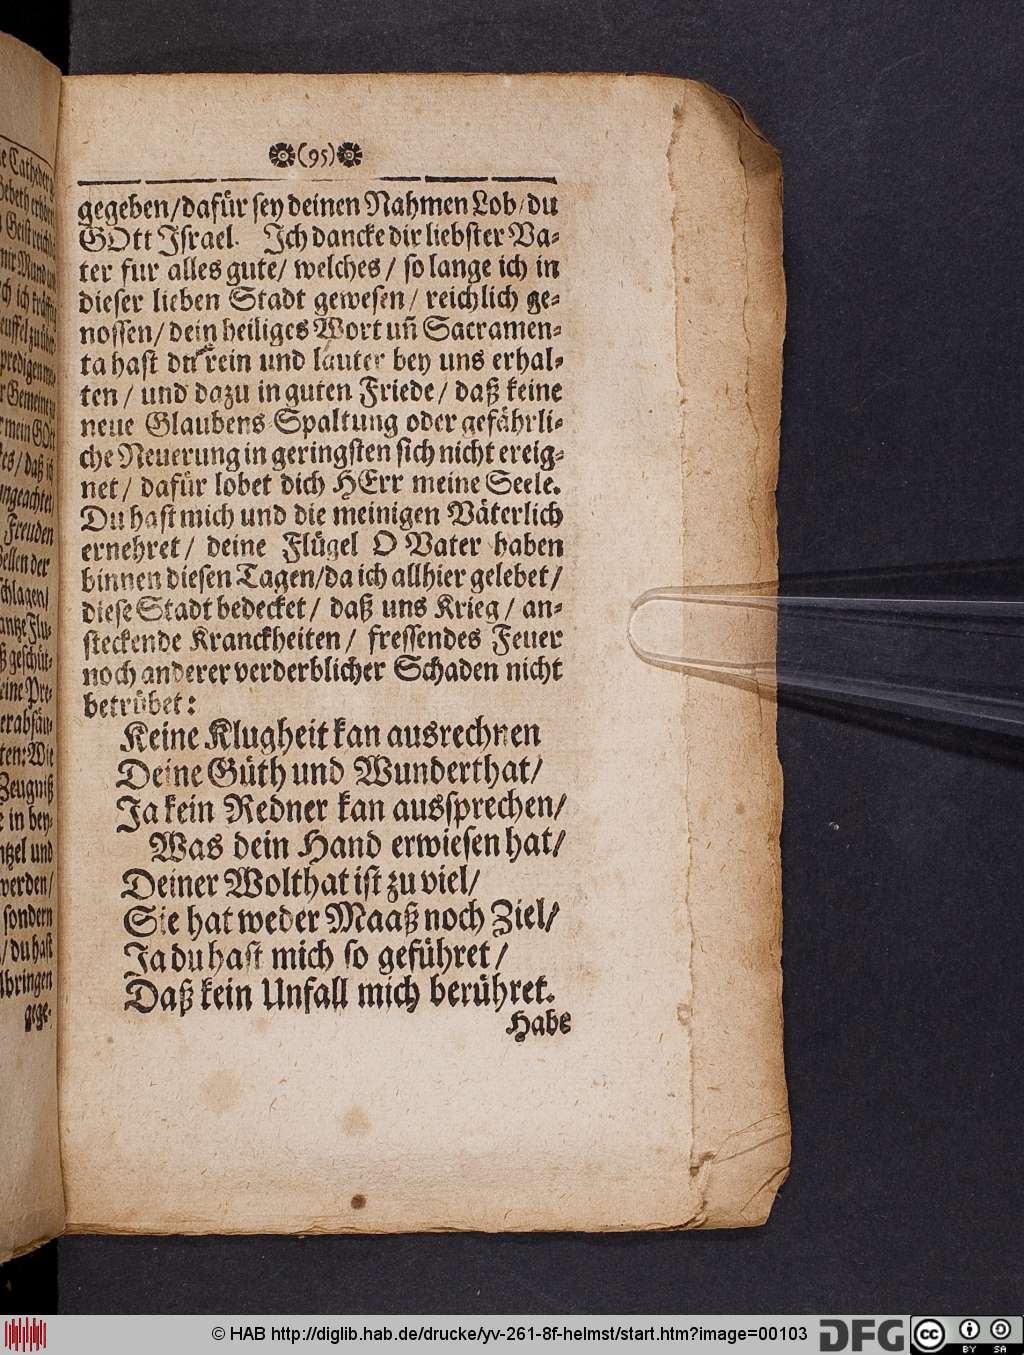 (95)
gegeben/dafür sey deinen Nahmen Lob/du
GOtt Israel. Ich dancke dir liebster Va-
ter fur alles gute/ welches/ so lange ich in
dieser lieben Stadt gewesen/ reichlich ge-
nossen/ dein heiliges Wort uñ Sacramen-
ta hast du rein und lauter bey uns erhal-
ten/ und dazu in guten Friede/ daß keine
neue Glaubens Spaltung oder gefährli-
che Neuerung in geringsten sich nicht ereig-
net/ dafür lobet dich HErr meine Seele.
Du hast mich und die meinigen Väterlich
ernehret/ deine Flügel O Vater haben
binnen diesen Tagen/da ich allhier gelebet/
diese Stadt bedecket/ daß uns Krieg/ an-
steckende Kranckheiten/ fressendes Feuer
noch anderer verderblicher Schaden nicht
betrübet:
Keine Klugheit kan ausrechnen
Deine Güth und Wunderthat/
Ja kein Redner kan aussprechen/
Was dein Hand erwiesen hat/
Deiner Wolthat ist zu viel/
Sie hat weder Maaß noch Ziel/
Ja du hast mich so geführet/
Daß kein Unfall mich berühret.
Habe
© HAB http://diglib.hab.de/drucke/yv-261-8f-helmst/start.htm?image=00103
DFG
cc
BY SA